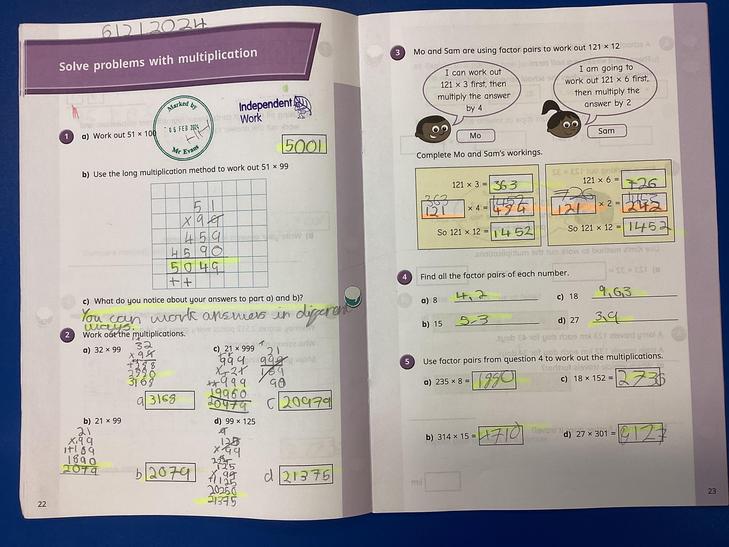 6/2/2024
Solve problems with multiplication
Marked by
06 FEB 2024
Mr Evans
Independent
Work
1 a) Work out 51 × 100
5001
b) Use the long multiplication method to work out 51 × 99
51
×99
459
4590
5049
++
c) What do you notice about your answers to part a) and b)?
You can work answers in different
ways.
2 Work out the multiplications.
a) 32 × 99
32
3168
a 3168
c) 21 × 999
999
×21
999
19980
20979
c 20979
b) 21 × 99
21
×99
189
1890
2079
b 2079
d) 99 × 125
125
×99
21375
d 21375
22
3 Mo and Sam are using factor pairs to work out 121 × 12
I can work out
121 × 3 first, then
multiply the answer
by 4
Mo
I am going to
work out 121 × 6 first,
then multiply the
answer by 2
Sam
Complete Mo and Sam's workings.
121 × 3 = 363
363
121 × 4 = 484
So 121 × 12 = 1452
121 × 6 = 726
726
121 × 2 = 242
So 121 × 12 = 1452
4 Find all the factor pairs of each number.
a) 8 4,2
c) 18 9,63
b) 15 5-3
d) 27 3,9
5 Use factor pairs from question 4 to work out the multiplications.
a) 235 × 8 = 1880
c) 18 × 152 = 2736
b) 314 × 15 = 4710
d) 27 × 301 = 8127
23